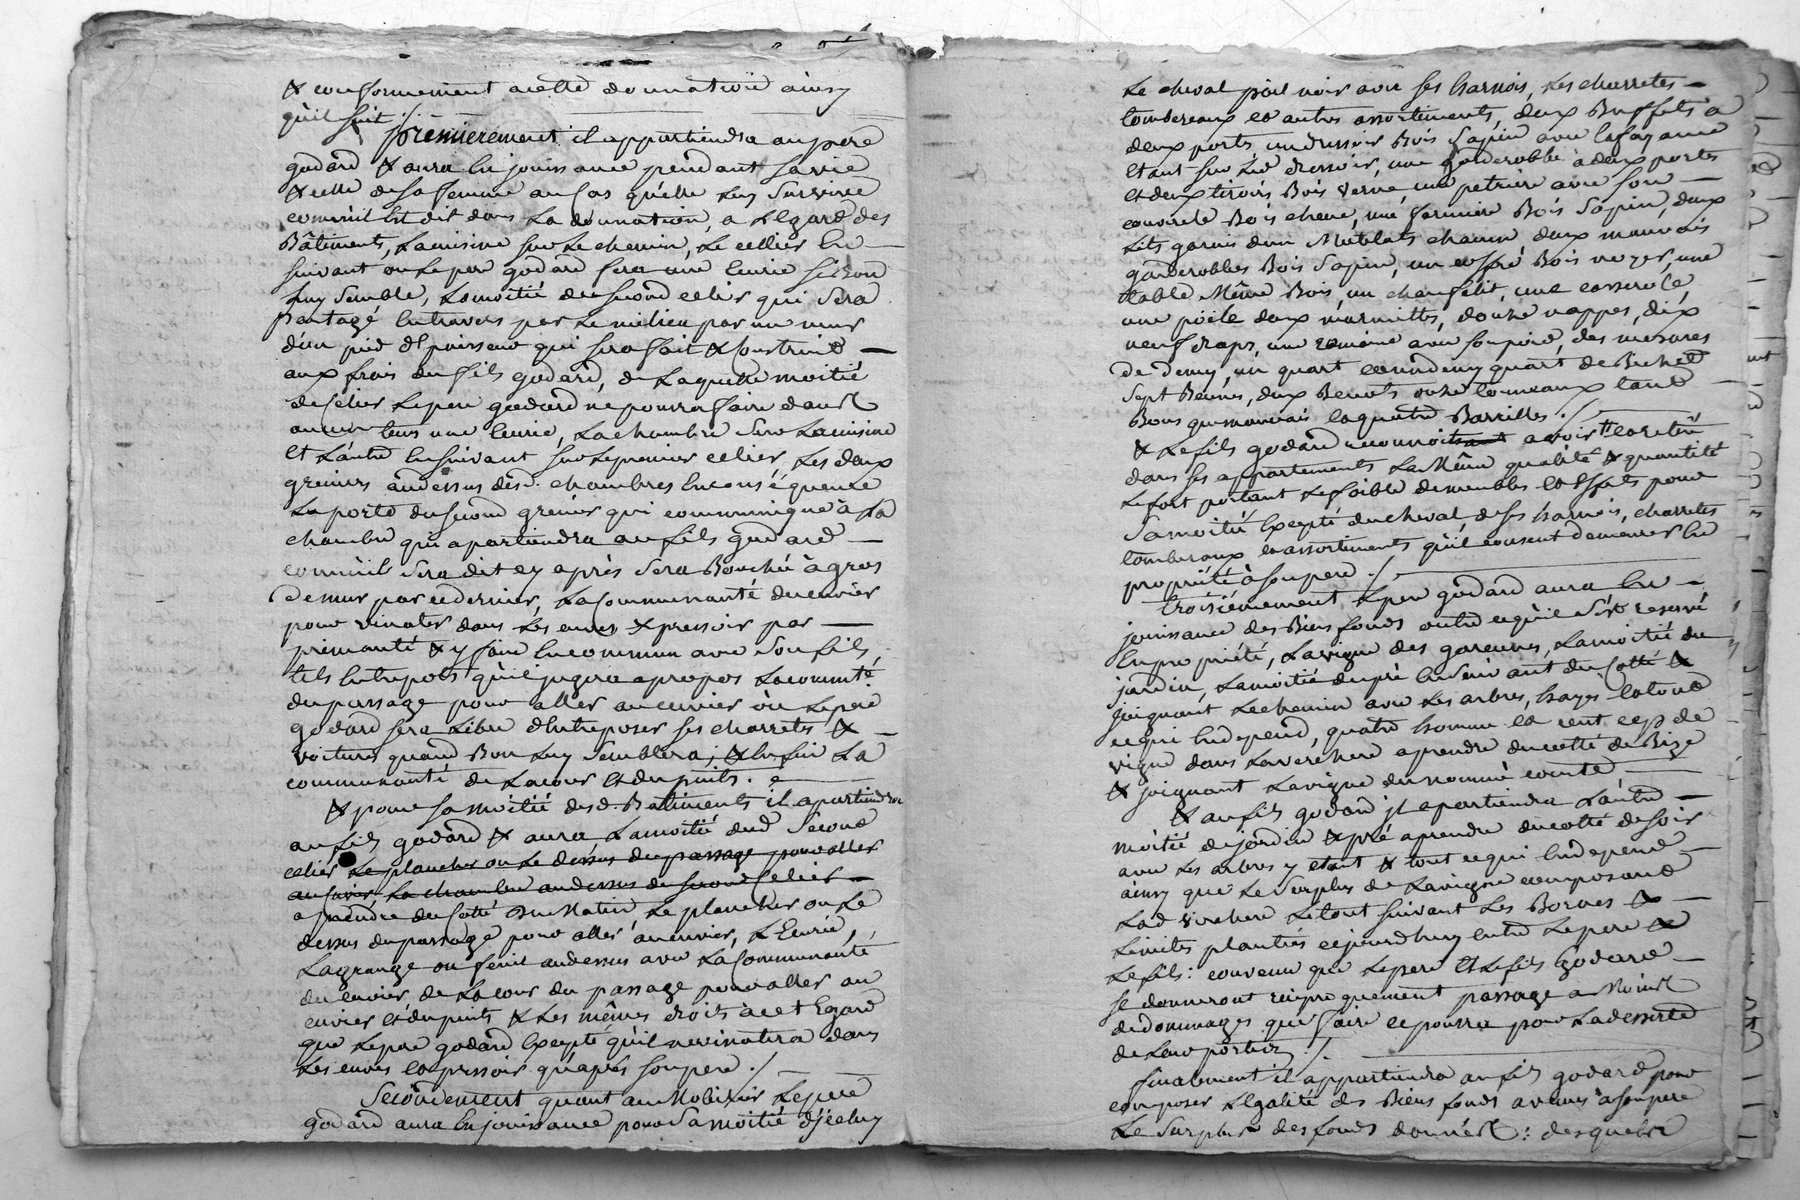 & conformement a cette donnation ainsy
qu'il suit ./.
premierement il appartiendra au pere
godard & aura En jouissance pendant sa vie
& celle de sa femme au Cas qu'elle Luy Survive
comm'il Est dit dans La donnation, a L'Egard des
Bâtiments, La cuisine sur Le chemin, Le cellier En
suivant ou Le pere godard fera une Ecurie si bon
Luy Semble, La moitié du second celier qui Sera
partagé En travers par Le milieu par un mur
d'un pied d'Epaisseur qui sera fait & Construit
aux frais du fils godard, de Laquelle moitié
de Celier Le pere godard ne pourra faire dans
aucun tems une Ecurie, La chambre sur La cuisine
Et L'autre En suivant sur Le premier celier, Les deux
greniers au dessus des d. chambres En consequence
La porte du second grenier qui communique à La
chambre qui apartiendra au fils godard
comm'il Sera dit cy après sera Bouchée à gros
de mur par ce dernier, La Communauté du cuvier
pour vinater dans Les cuves & pressoir par
primauté & y faire En commun avec Son fils,
tels Entrepots qu'il jugera apropos La commté
du passage pour aller au cuvier où Le pere
godard sera Libre d'Entreposer ses charretes &
voitures quand Bon Luy Semblera; & Enfin La
communauté de La cour Et du puits.
& pour sa moitié des d. Batiments il apartiendra
au fils godard & aura La moitié dud Second
celier Le plancher ou Le dessus du passage pour aller
au cuvier, La chambre au dessus du second Celier
a prendre du Cotté du Matin Le plancher ou Le
dessus du passage pour aller au cuvier, L'Ecurie,
La grange ou fenil au dessus avec La Communauté
du cuvier, de La cour du passage pour aller au
cuvier et du puits & Les mêmes droits à cet Egard
que Le pere godard Excepté qu'il ne vinatera dans
Les cuves et pressoir qu'après son pere ./
Secondement quant au Mobilier Le pere
godard aura En jouissance pour Sa moitié d'jceluy
Le cheval poil noir avec ses harnois, Les charretes
tombereaux et autres assortiments, deux Buffets a
deux portes un dressoir Bois Sapin avec La fayance
Etant sur Led dressoir, une garderobbe à deux portes
et deux tiroirs Bois verne, une petriere avec son
couvercle Bois chene, une fariniere Bois Sapin, deux
Lits garnis d'un Matelats chacun deux mauvais
garderobbes Bois Sapin, un coffre Bois noyer, une
table Même Bois, un chaufelit, une casserole
une poêle deux marmittes, douze nappes, dix
neuf draps, une romaine avec son poid, des mesures
de demy, un quart et un demy quart de Bichet
Sept Bennes, deux Benots onze tonneaux tant
Bons que mauvais et quatre Barrilles ./
& Le fils godard reconnoit avoir et retenir
dans ses appartements La Même qualité & quantité
Le fort portant Le foible de meubles et Effets pour
Sa moitié Excepté du cheval, de ses harnois, charretes
tombereaux et assortiments qu'il consent demeurer En
propriété à son pere ./
troisiemement Le pere godard aura En
jouissance des Biens fonds outre ce qu'il s'est reservé
En propriété, La vigne des garennes, La moitié du
jardin, La moitié du pré En suivant du Cotté &
joignant Le chemin avec Les arbres, hayes et tout
ce qui En depend, quatre hommes et cent ceps de
vigne dans La verchere a prendre du cotté de Bize
& joignant La vigne du nommé comte,
& au fils godard jl apartiendra L'autre
moitié de jardin & pré a prendre du cotté de soir
avec Les arbres y etant & tout ce qui En depend
ainsy que Le Surplus de La vigne composant
Lad verchere Le tout suivant Les Bornes &
Limites plantées cejourdhuy entre Le pere &
Le fils: convenu que Le pere Et Le fils Godard
se donneront reciproquement passage a Moins
de dommages que faire ce pourra pour La desserte
de Leur portion ./.
finalement il appartiendra au fils godard pour
composer L'Egalité des Biens fonds avenus à son pere
Le Surplus des fonds donnés: desquels